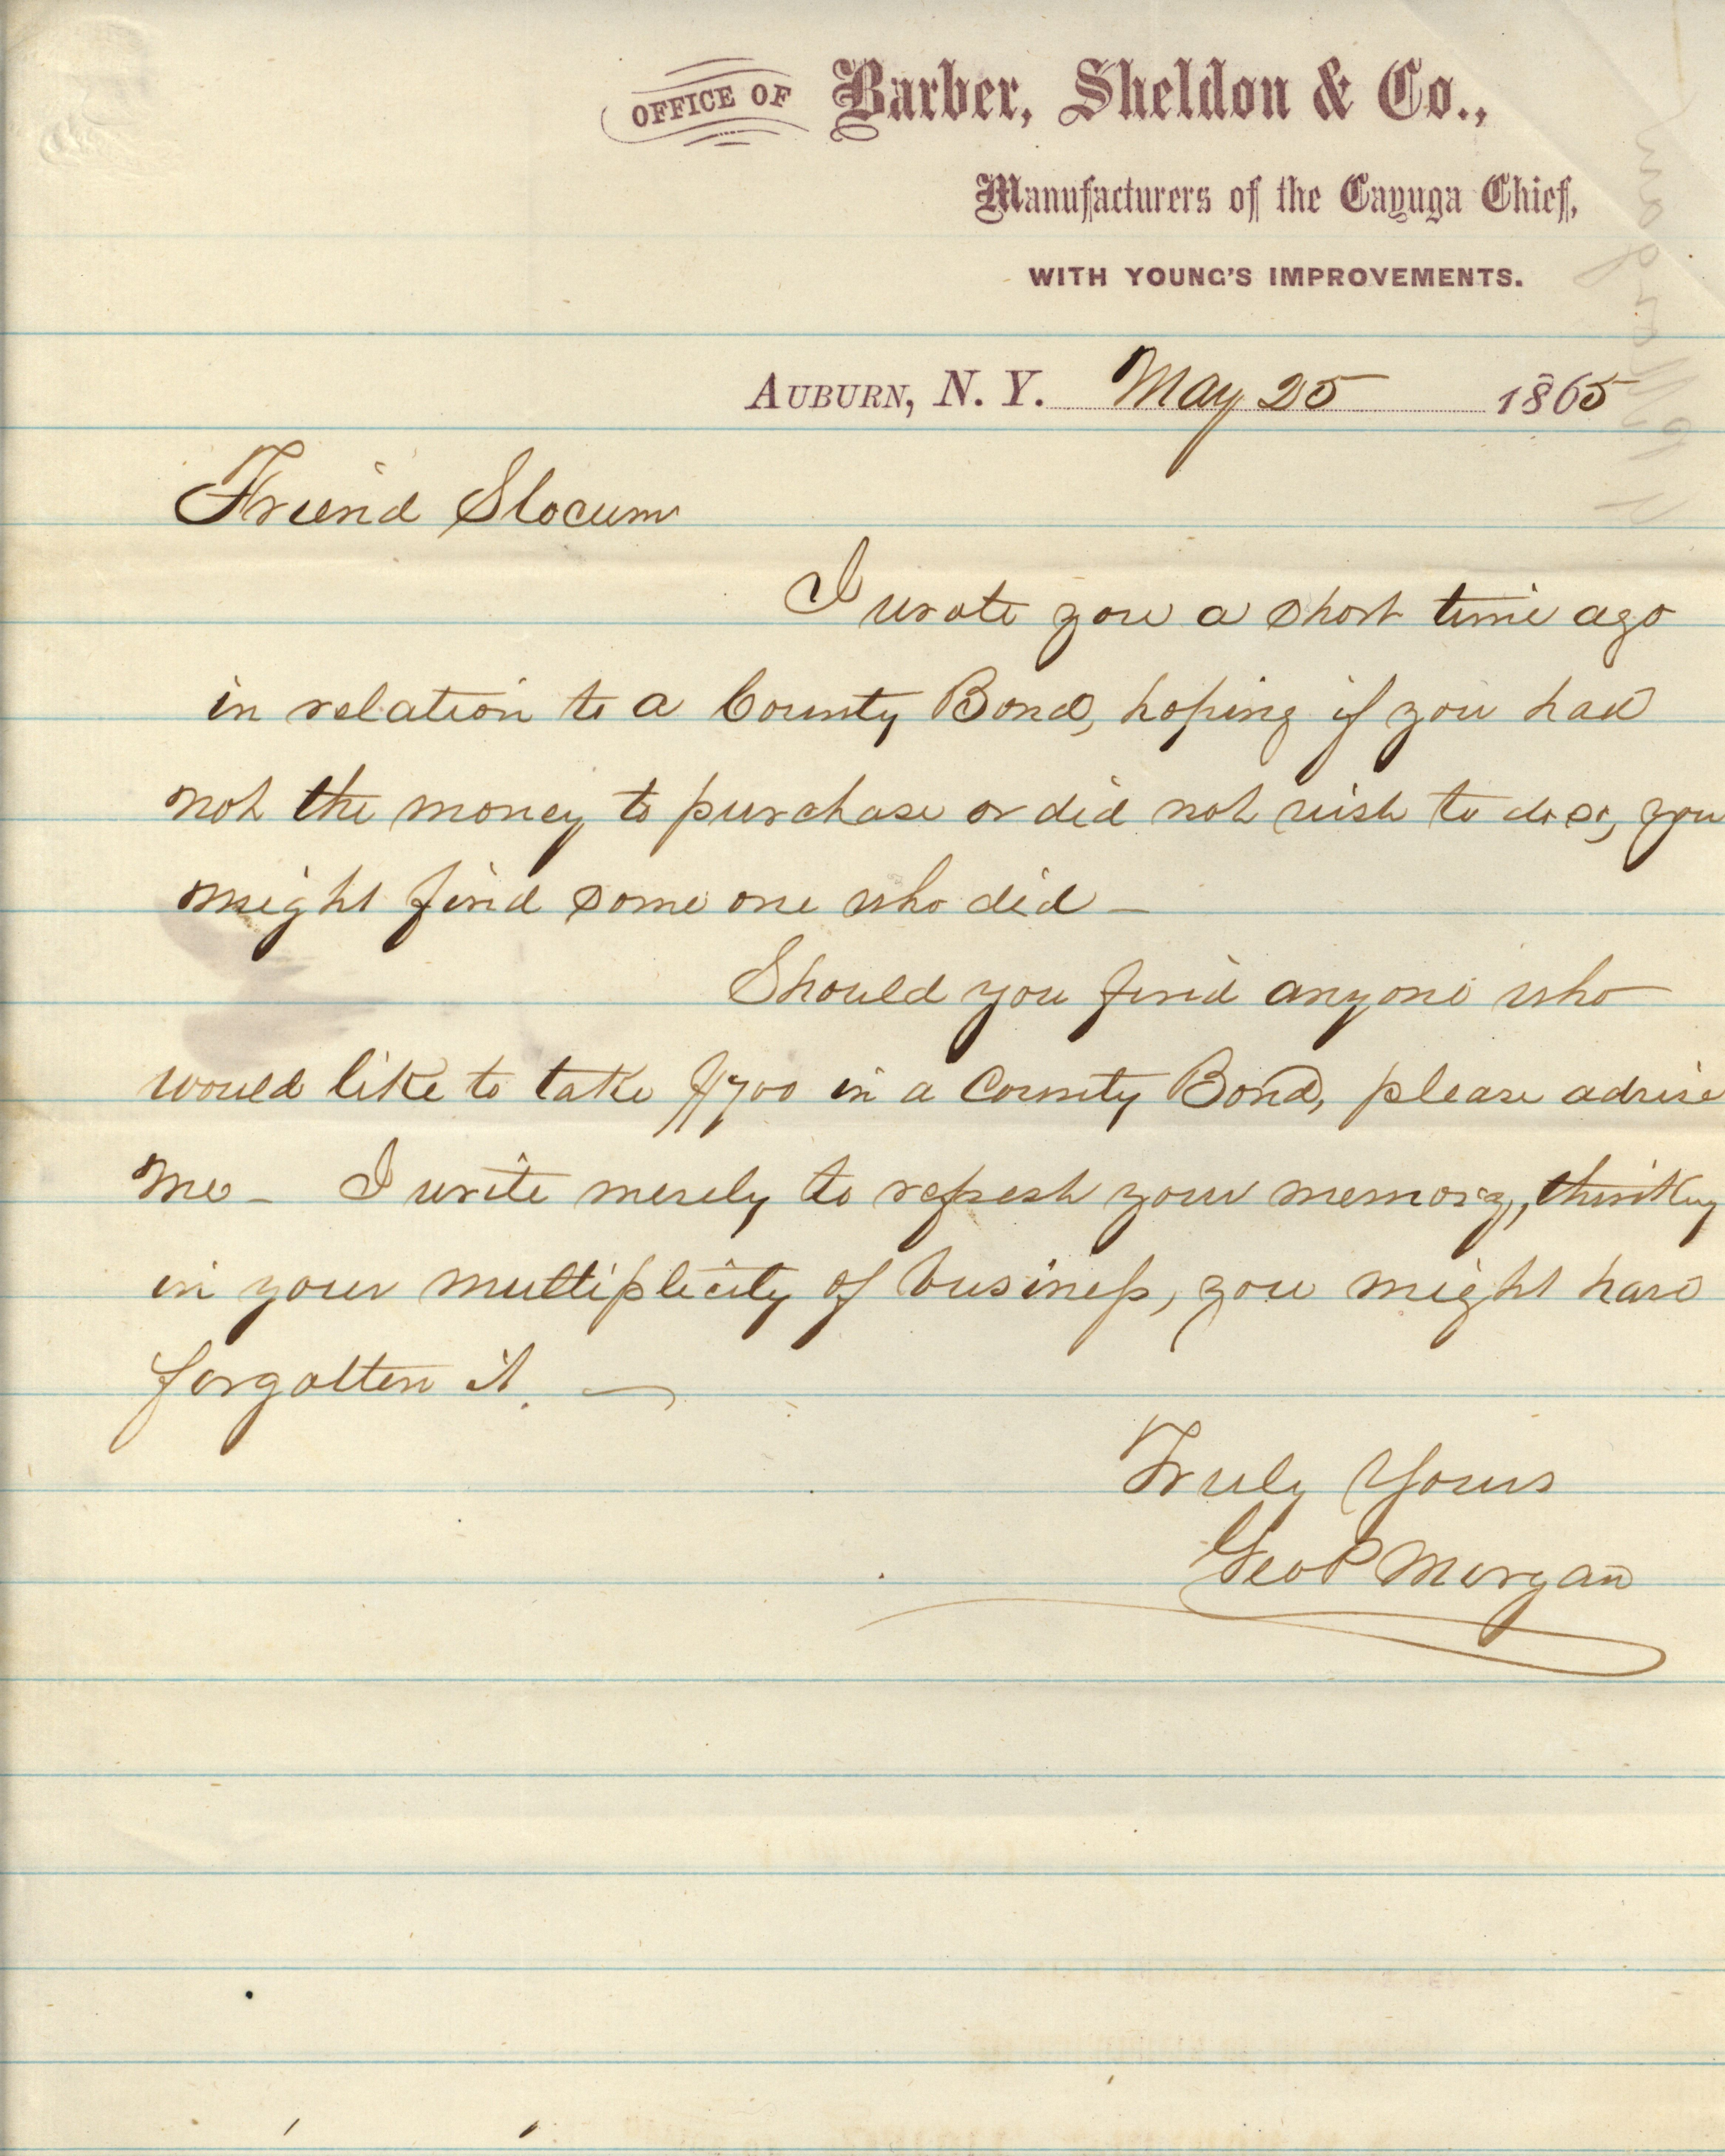 OFFICE OF Barber, Sheldon & Co.,
Manufacturers of the Cayuga Chief,
WITH YOUNG'S IMPROVEMENTS.
AUBURN, N. Y. May 25 1865
Friend Slocum
I wrote you a short time ago
in relation to a County Bond, hoping if you had
not the money to purchase or did not wish to do so, you
might find some one who did –
Should you find anyone who
would like to take $700 in a County Bond, please advise
me – I write merely to refresh your memory, thinking
in your multiplicity of business, you might have
forgotten it. —
Truly Yours
Geo P Morgan